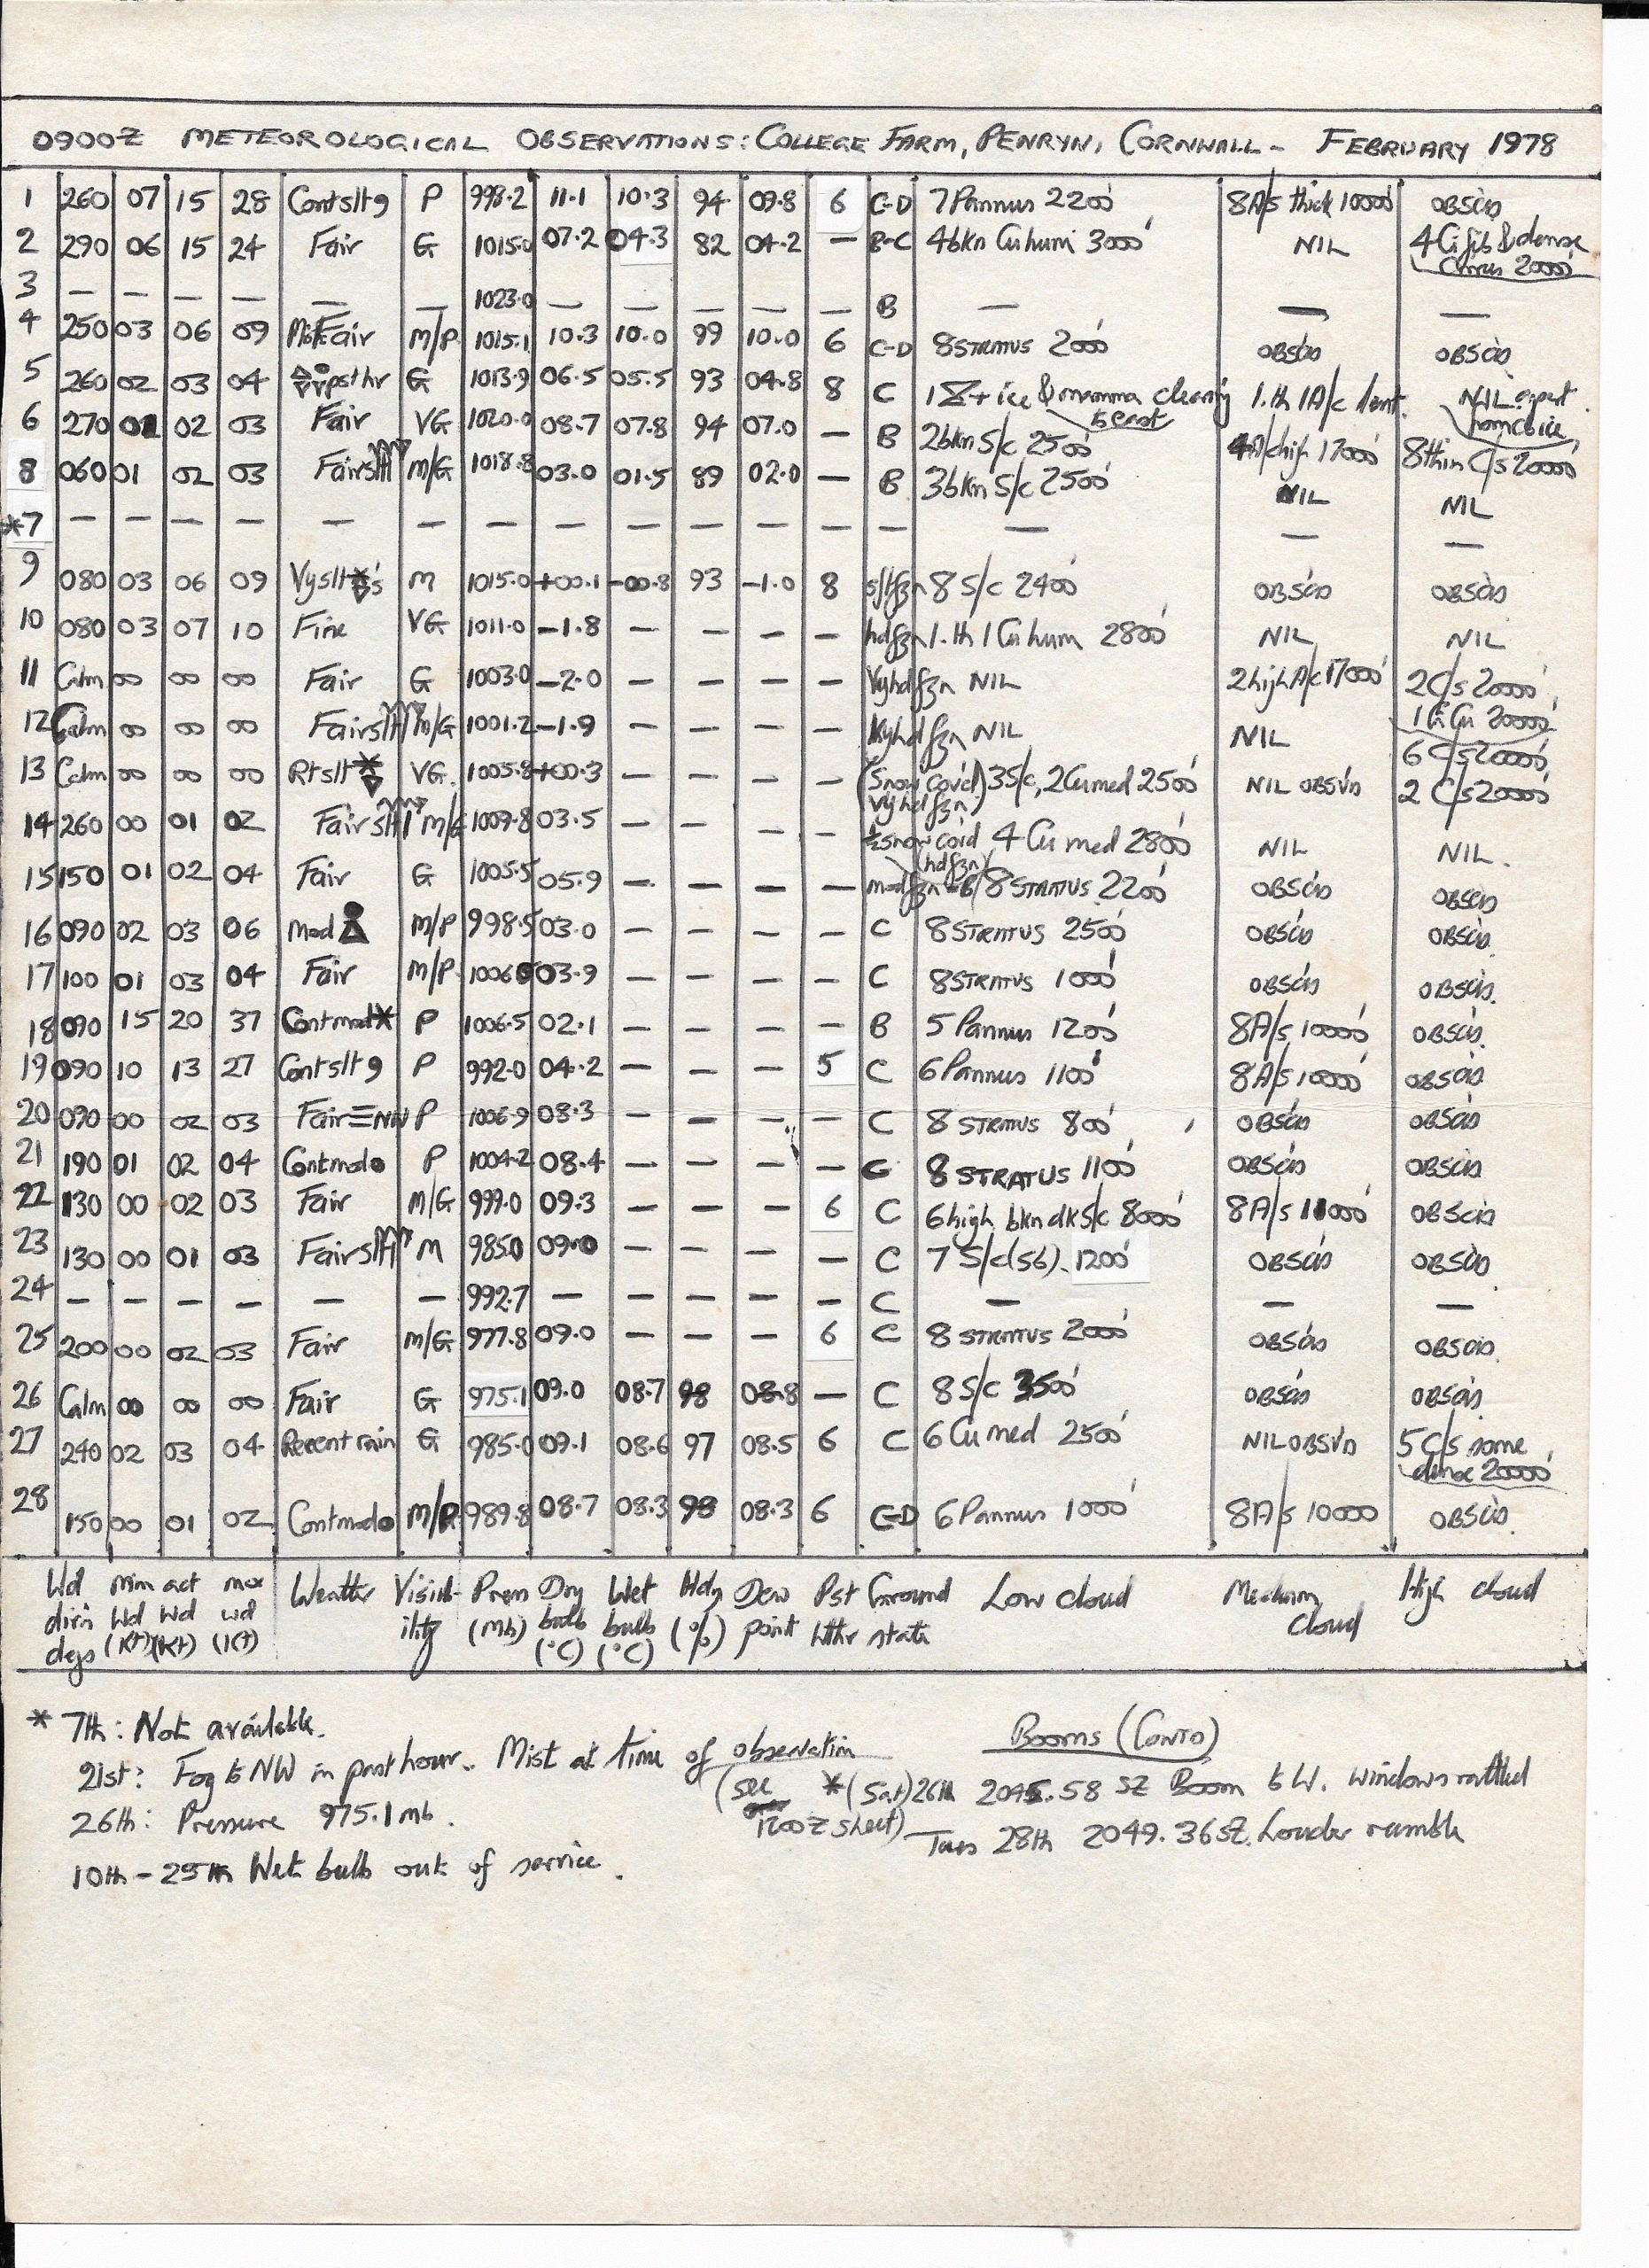 0900Z METEOROLOGICAL OBSERVATIONS: COLLEGE FARM, PENRYN, CORNWALL - FEBRUARY 1978
1 260 07 15 28 Contslt9 P 998.2 11.1 10.3 94 09.8 6 C-D 7 Pannus 2200' 8A/s thick 10000' OBSC'D
2 290 06 15 24 Fair G 1015.0 07.2 04.3 82 04.2 — B-C 4bkn Cu hum 3000' NIL 4 Ci fib & dense
Cirrus 20000'
3 — — — — — — 1023.0 — — — — — B — — —
4 250 03 06 09 Fair M/P 1015.1 10.3 10.0 99 10.0 6 C-D 8 STRATUS 2000' OBSC'D OBSC'D
5 260 02 03 04 psthr G 1013.9 06.5 05.5 93 04.8 8 C 1 + ice & mamma clearing 1.th 1A/c lent. NIL apart
to east from cb ice
6 270 01 02 03 Fair VG 1020.0 08.7 07.8 94 07.0 — B 2bkn S/c 2500' 4A/c high 17000' 8thin C/s 20000'
8 060 01 02 03 Fair M/G 1018.8 03.0 01.5 89 02.0 — B 3bkn S/c 2500' NIL NIL
*7 — — — — — — — — — — — — — — — —
9 080 03 06 09 Vyslt's M 1015.0 +00.1 -00.8 93 -1.0 8 sltfzn 8 S/c 2400' OBSC'D OBSC'D
10 080 03 07 10 Fine VG 1011.0 -1.8 — — — — hdfzn 1.th 1 Cu hum 2800' NIL NIL
11 Calm 00 00 00 Fair G 1003.0 -2.0 — — — — Vyhd fzn NIL 2 high A/c 17000' 2 C/s 20000'
1 Ci Cu 20000'
12 Calm 00 00 00 Fair M/G 1001.2 -1.9 — — — — Vyhd fzn NIL NIL
6 C/s 20000'
13 Calm 00 00 00 Rtslt VG. 1005.8 +00.3 — — — — (Snow cov'd) 3S/c, 2Cu med 2500' NIL OBSV'D 2 C/s 20000'
vyhd fzn
14 260 00 01 02 Fair M/G 1009.8 03.5 — — — — ½ snow co'd 4 Cu med 2800' NIL NIL.
(hdfzn)
15 150 01 02 04 Fair G 1005.5 05.9 — — — — modfzn 8 STRATUS 2200' OBSC'D OBSC'D
16 090 02 03 06 Mod M/P 998.5 03.0 — — — — C 8 STRATUS 2500' OBSC'D OBSC'D.
17 100 01 03 04 Fair M/P 1006.0 03.9 — — — — C 8 STRATUS 1000' OBSC'D OBSC'D.
18 090 15 20 37 Contmod* P 1006.5 02.1 — — — — B 5 Pannus 1200' 8A/s 10000' OBSC'D.
19 090 10 13 27 Contslt 9 P 992.0 04.2 — — — 5 C 6 Pannus 1100' 8A/s 10000' OBSC'D
20 090 00 02 03 Fair≡NW P 1006.9 08.3 — — — — C 8 STRATUS 800' OBSC'D OBSC'D
21 190 01 02 04 Contmod● P 1004.2 08.4 — — — — C 8 STRATUS 1100' OBSC'D OBSC'D
22 130 00 02 03 Fair M/G 999.0 09.3 — — — 6 C 6 high bkn dk S/c 8000' 8A/s 11000' OBSC'D
23 130 00 01 03 Fair M 985.0 09.0 — — — — C 7 S/c(sb). 1200' OBSC'D OBSC'D
24 — — — — — — 992.7 — — — — — C — — —
25 200 00 02 03 Fair M/G 977.8 09.0 — — — 6 C 8 STRATUS 2000' OBSC'D OBSC'D.
26 Calm 00 00 00 Fair G 975.1 09.0 08.7 98 08.8 — C 8 S/c 3500' OBSC'D OBSC'D.
27 240 02 03 04 Recent rain G 985.0 09.1 08.6 97 08.5 6 C 6 Cu med 2500' NIL OBSV'D 5 C/s some
dense 20000'
28 150 00 01 02 Contmod● M/P 989.8 08.7 08.3 98 08.3 6 C-D 6 Pannus 1000' 8A/s 10000 OBSC'D.
Wd min act max Weather Visib- Press Dry Wet Hdy Dew Pst Ground Low cloud Medium High cloud
dir'n Wd Wd wd ility (Mb) bulb bulb (%) point Wthr state cloud
degs (Kt) (Kt) (Kt) (°C) (°C)
* 7th: Not available.
21st: Fog to NW in past hour. Mist at time of observation
26th: Pressure 975.1mb.
10th - 25th Wet bulb out of service.
Booms (CONTD)
(see 1200Z sheet) *(Sat) 26th 2045.58 SZ Boom to W. windows rattled
Tues 28th 2049.36SZ. Louder rumble